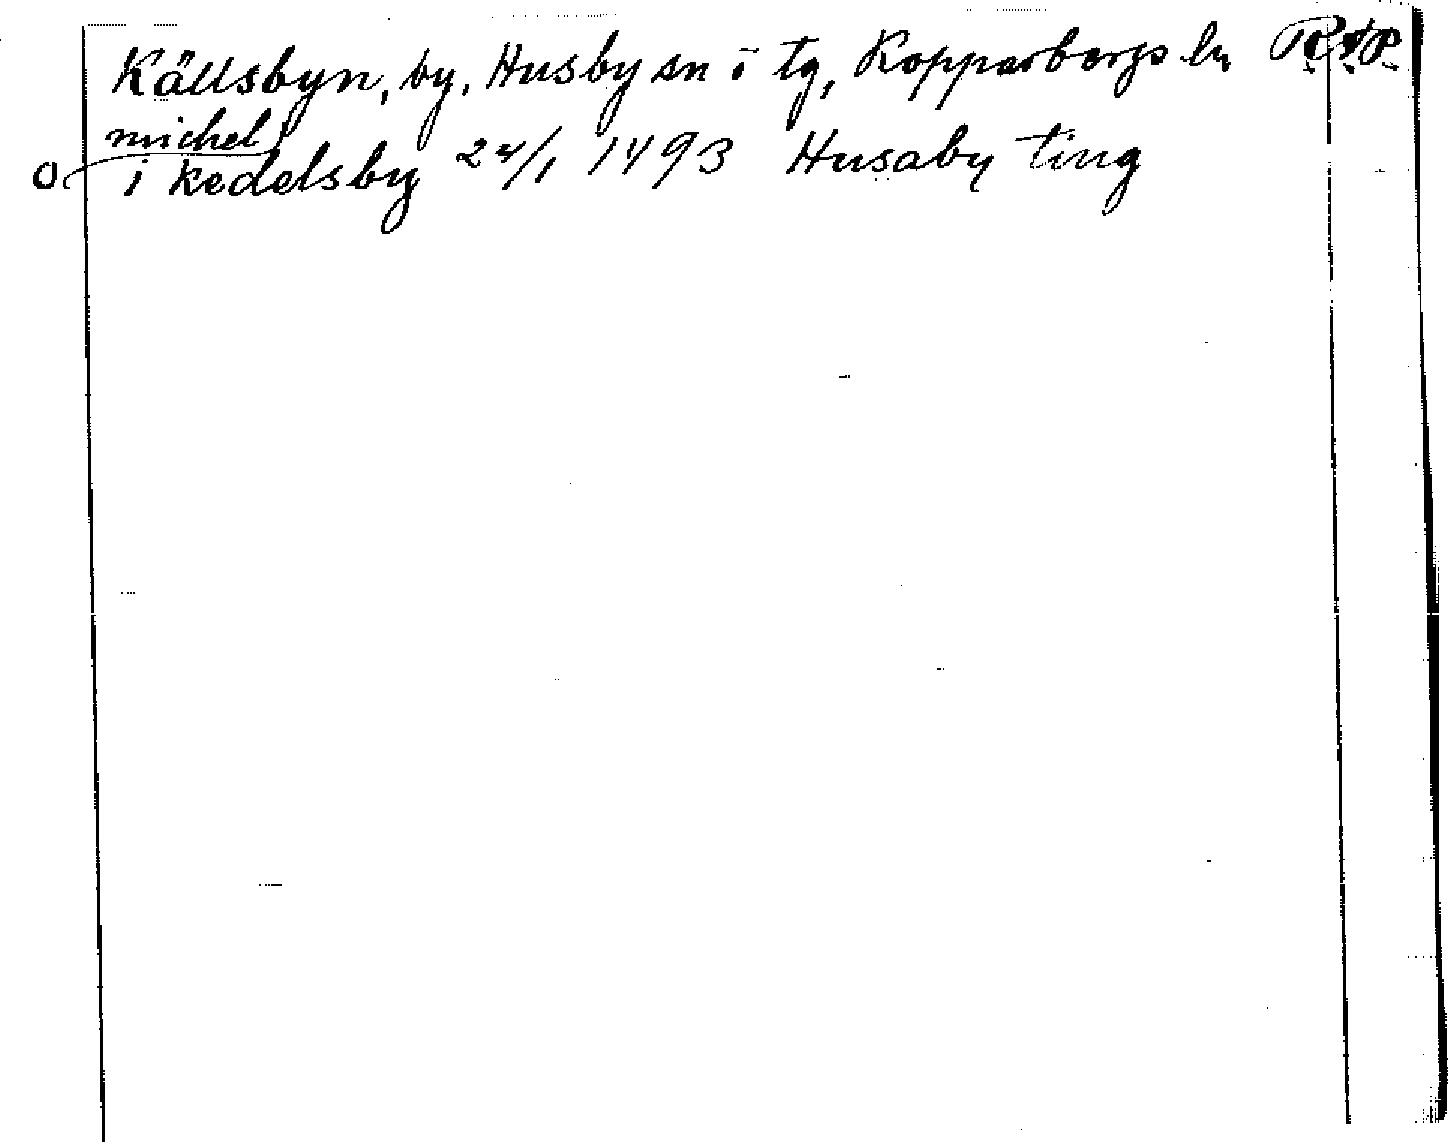 Källsbyn, by, Husby sn i tg, Kopparbergs ln
michel
o i kedelsby 24/1 1493 Husaby ting